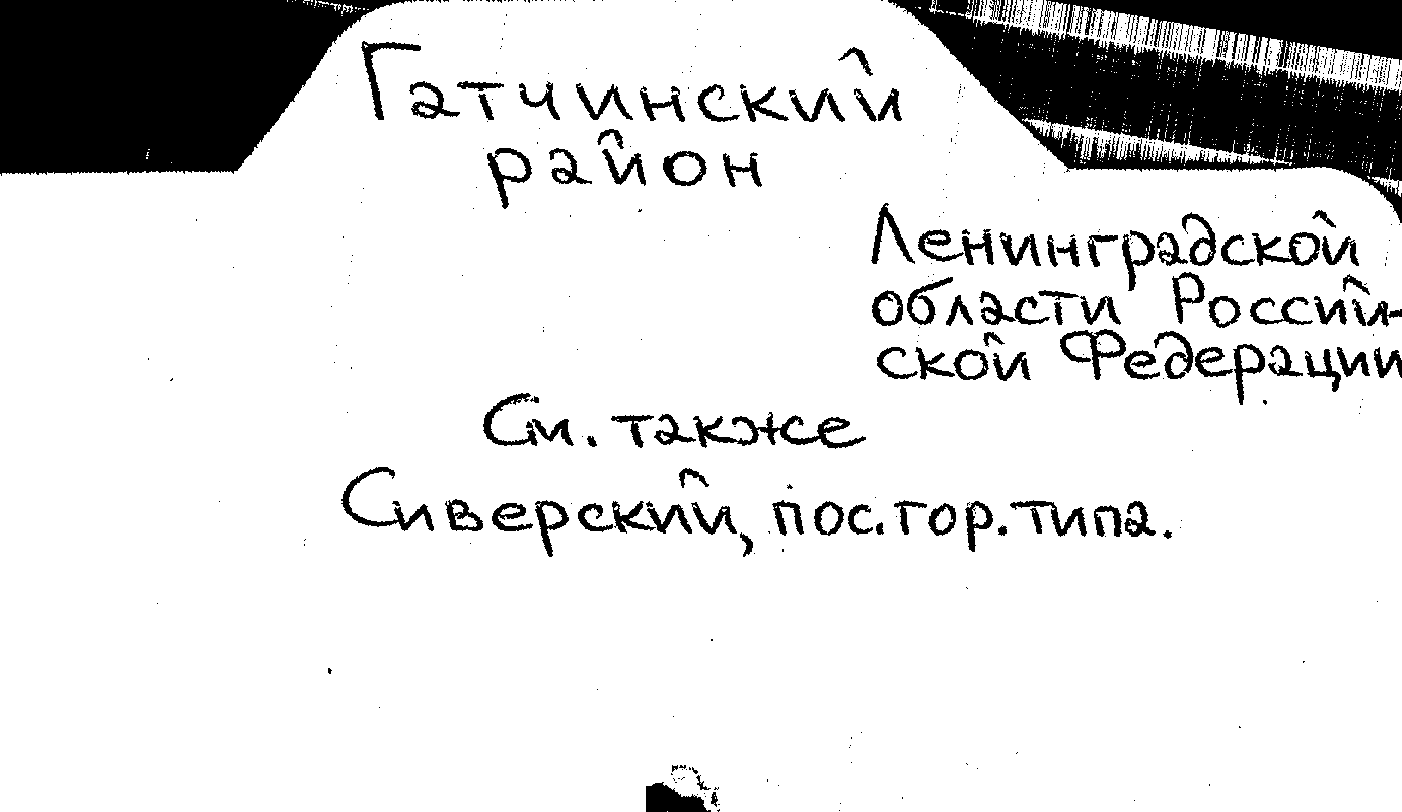 Гатчинский
район
Ленинградской
области Россий-
ской Федерации
См. также
Сиверский, пос. гор. типа.